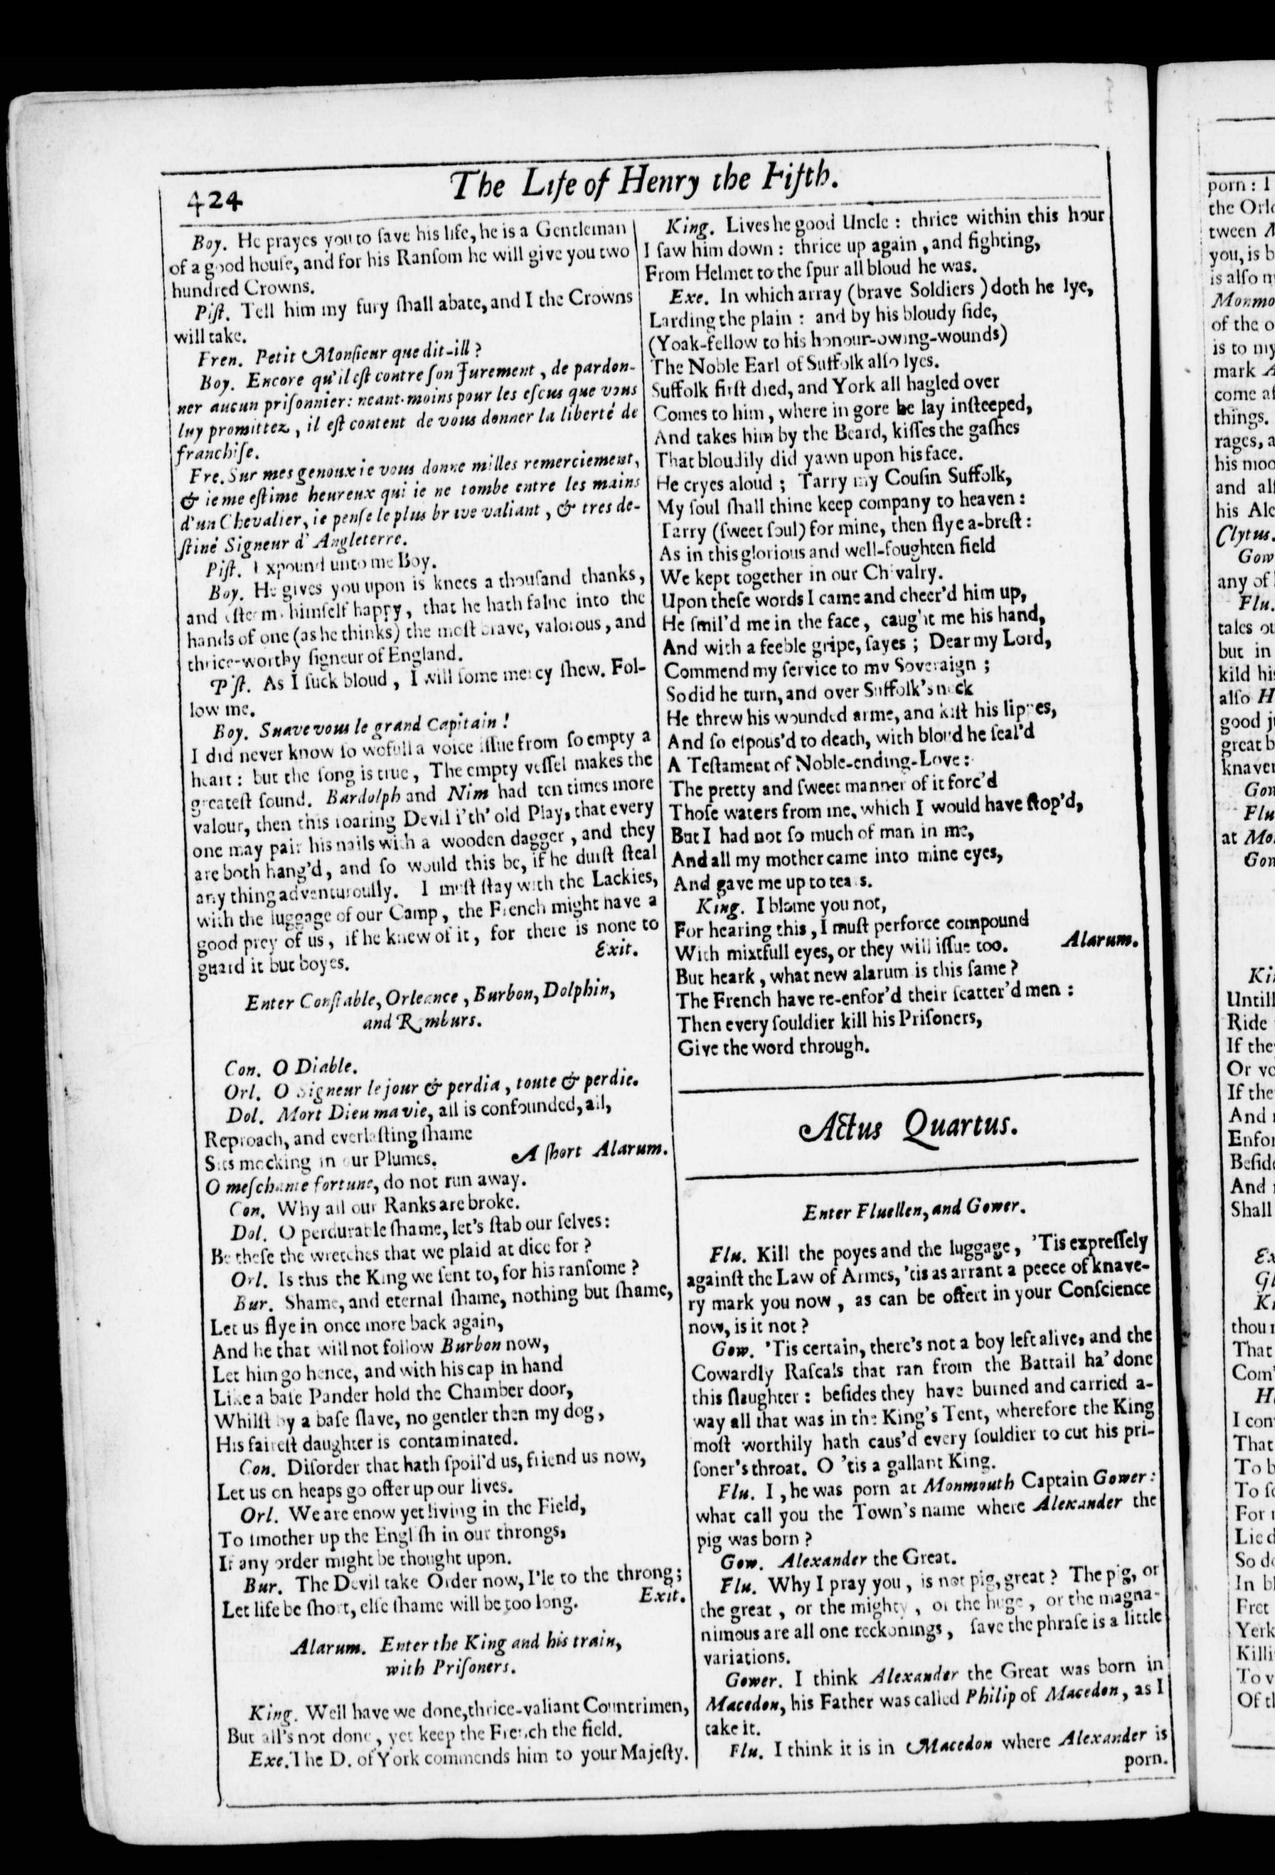 424
The Life of Henry the Fifth.
Boy. He prayes you to ſave his life, he is a Gentleman
of a good houſe, and for his Ranſom he will give you two
hundred Crowns.
Piſt. Tell him my fury ſhall abate, and I the Crowns
will take.
Fren. Petit Monſieur que dit-ill?
Boy. Encore qu'il eſt contre ſon Jurement, de pardon-
ner aucun priſonnier: neant-moins pour les eſcus que vous
luy promittez, il eſt content de vous donner la liberté de
franchiſe.
Fre. Sur mes genoux ie vous donne milles remerciement,
& ie me eſtime heureux qui ie ne tombe entre les mains
d'un Chevalier, ie penſe le plus brave valiant, & tres de-
ſtiné Signeur d'Angleterre.
Piſt. Expound unto me Boy.
Boy. He gives you upon is knees a thouſand thanks,
and eſteems himſelf happy, that he hath falne into the
hands of one (as he thinks) the moſt brave, valorous, and
thrice-worthy ſigneur of England.
Piſt. As I ſuck bloud, I will ſome mercy ſhew. Fol-
low me.
Boy. Suave vous le grand Capitain!
I did never know ſo wofull a voice iſſue from ſo empty a
heart: but the ſong is true, The empty veſſel makes the
greateſt ſound. Bardolph and Nim had ten times more
valour, then this roaring Devil i'th' old Play, that every
one may pair his nails with a wooden dagger, and they
are both hang'd, and ſo would this be, if he durſt ſteal
any thing adventurouſly. I muſt ſtay with the Lackies,
with the luggage of our Camp, the French might have a
good prey of us, if he knew of it, for there is none to
guard it but boyes.
Exit.
Enter Conſtable, Orleance, Burbon, Dolphin,
and Ramburs.
Con. O Diable.
Orl. O Signeur le jour & perdia, toute & perdie.
Dol. Mort Dieu ma vie, all is confounded, all,
Reproach, and everlaſting ſhame
Sits mocking in our Plumes.
A ſhort Alarum.
O meſchante fortune, do not run away.
Con. Why all our Ranks are broke.
Dol. O perdurable ſhame, let's ſtab our ſelves:
Be theſe the wretches that we plaid at dice for?
Orl. Is this the King we ſent to, for his ranſome?
Bur. Shame, and eternal ſhame, nothing but ſhame,
Let us flye in once more back again,
And he that will not follow Burbon now,
Let him go hence, and with his cap in hand
Like a baſe Pander hold the Chamber door,
Whilſt by a baſe ſlave, no gentler then my dog,
His faireſt daughter is contaminated.
Con. Diſorder that hath ſpoil'd us, friend us now,
Let us on heaps go offer up our lives.
Orl. We are enow yet living in the Field,
To ſmother up the Engliſh in our throngs,
If any order might be thought upon.
Bur. The Devil take Order now, I'le to the throng;
Let life be ſhort, elſe ſhame will be too long.
Exit.
Alarum. Enter the King and his train,
with Priſoners.
King. Well have we done, thrice-valiant Countrimen,
But all's not done, yet keep the French the field.
Exe. The D. of York commends him to your Majeſty.
King. Lives he good Uncle: thrice within this hour
I ſaw him down: thrice up again, and fighting,
From Helmet to the ſpur all bloud he was.
Exe. In which array (brave Soldiers) doth he lye,
Larding the plain: and by his bloudy ſide,
(Yoak-fellow to his honour-owing-wounds)
The Noble Earl of Suffolk alſo lyes.
Suffolk firſt died, and York all hagled over
Comes to him, where in gore he lay inſteeped,
And takes him by the Beard, kiſſes the gaſhes
That bloudily did yawn upon his face.
He cryes aloud; Tarry my Couſin Suffolk,
My ſoul ſhall thine keep company to heaven:
Tarry (ſweet ſoul) for mine, then flye a-breſt:
As in this glorious and well-foughten field
We kept together in our Chivalry.
Upon theſe words I came and cheer'd him up,
He ſmil'd me in the face, caught me his hand,
And with a feeble gripe, ſayes; Dear my Lord,
Commend my ſervice to my Soveraign;
So did he turn, and over Suffolk's neck
He threw his wounded arme, and kiſt his lippes,
And ſo eſpous'd to death, with bloud he ſeal'd
A Teſtament of Noble-ending-Love:
The pretty and ſweet manner of it forc'd
Thoſe waters from me, which I would have ſtop'd,
But I had not ſo much of man in me,
And all my mother came into mine eyes,
And gave me up to tears.
King. I blame you not,
For hearing this, I muſt perforce compound
With mixtfull eyes, or they will iſſue too.
Alarum.
But heark, what new alarum is this ſame?
The French have re-enfor'd their ſcatter'd men:
Then every ſouldier kill his Priſoners,
Give the word through.
Actus Quartus.
Enter Fluellen, and Gower.
Flu. Kill the poyes and the luggage, 'Tis expreſſely
againſt the Law of Armes, 'tis as arrant a peece of knave-
ry mark you now, as can be offert in your Conſcience
now, is it not?
Gow. 'Tis certain, there's not a boy left alive, and the
Cowardly Raſcals that ran from the Battail ha' done
this ſlaughter: beſides they have burned and carried a-
way all that was in the King's Tent, wherefore the King
moſt worthily hath caus'd every ſouldier to cut his pri-
ſoner's throat. O 'tis a gallant King.
Flu. I, he was porn at Monmouth Captain Gower:
what call you the Town's name where Alexander the
pig was born?
Gow. Alexander the Great.
Flu. Why I pray you, is not pig, great? The pig, or
the great, or the mighty, or the huge, or the magna-
nimous are all one reckonings, ſave the phraſe is a little
variations.
Gower. I think Alexander the Great was born in
Macedon, his Father was called Philip of Macedon, as I
take it.
Flu. I think it is in Macedon where Alexander is
porn.
porn: I
the Orl
tween
you, is
is alſo
Monmo
of the
is to my
mark
come
things.
rages,
his
and
his
Clytus.
Gow
any of
Flu.
tales
but in
kild
alſo
good
great
knaver
Gow
Flu
at
Gow
Untill
Ride
If
Or
If the
And
Beſid
And
Shall
thou
That
I
That
To
To
For
Lie
So
In
Fret
Yerk
Killi
To
Of